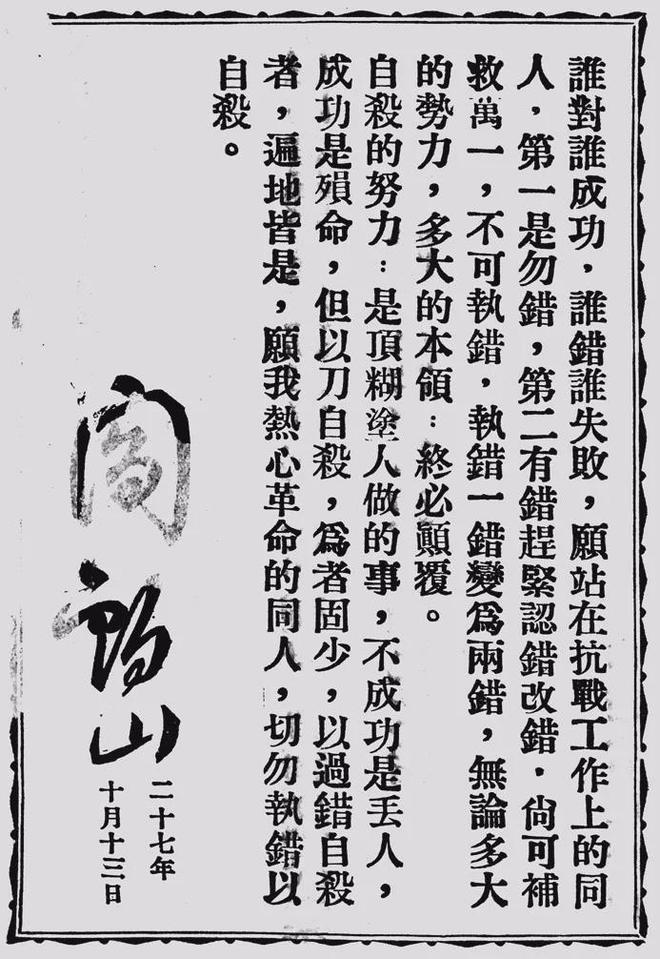 誰對誰成功，誰錯誰失敗，願站在抗戰工作上的同
人，第一是勿錯，第二有錯趕緊認錯改錯．尙可補
救萬一，不可執錯．執錯一錯變爲兩錯，無論多大
的勢力，多大的本領：終必顚覆。
自殺的努力：是頂糊塗人做的事，不成功是丟人，
成功是殞命，但以刀自殺，爲者固少，以過錯自殺
者，遍地皆是，願我熱心革命的同人，切勿執錯以
自殺。
閻錫山
二十七年
十月十三日